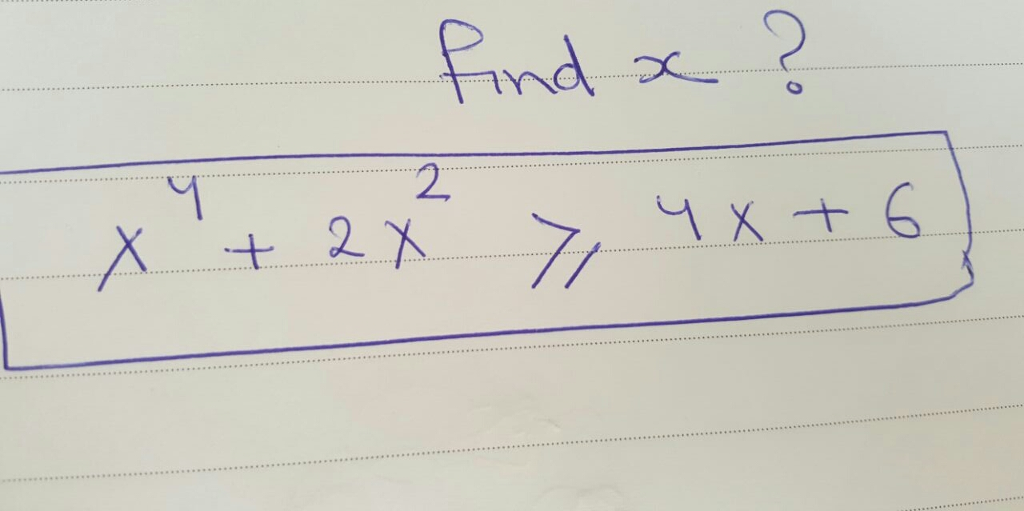 find x ?
x⁴ + 2x² ⩾ 4x + 6